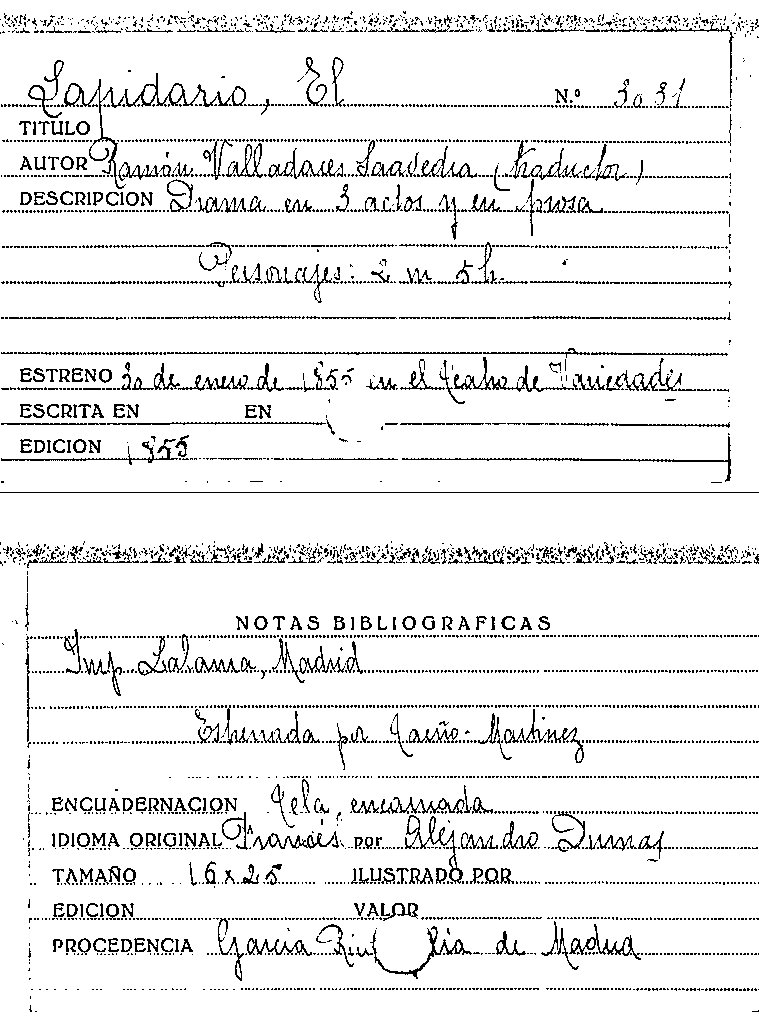 Lapidario, El
N.º 3031
TITULO
AUTOR Ramón Valladares Saavedra (traductor)
DESCRIPCION Drama en 3 actos y en prosa
Personajes: 2 m 5 h.
ESTRENO 30 de enero de 1855 en el Teatro de Variedades
ESCRITA EN EN
EDICION 1855
NOTAS BIBLIOGRAFICAS
Imp. Lalama, Madrid
Estrenada por Martinez
ENCUADERNACION Tela encarnada
IDIOMA ORIGINAL Francés por Alejandro Dumas
TAMAÑO 16 x 25 ILUSTRADO POR
EDICION VALOR
PROCEDENCIA Garcia de